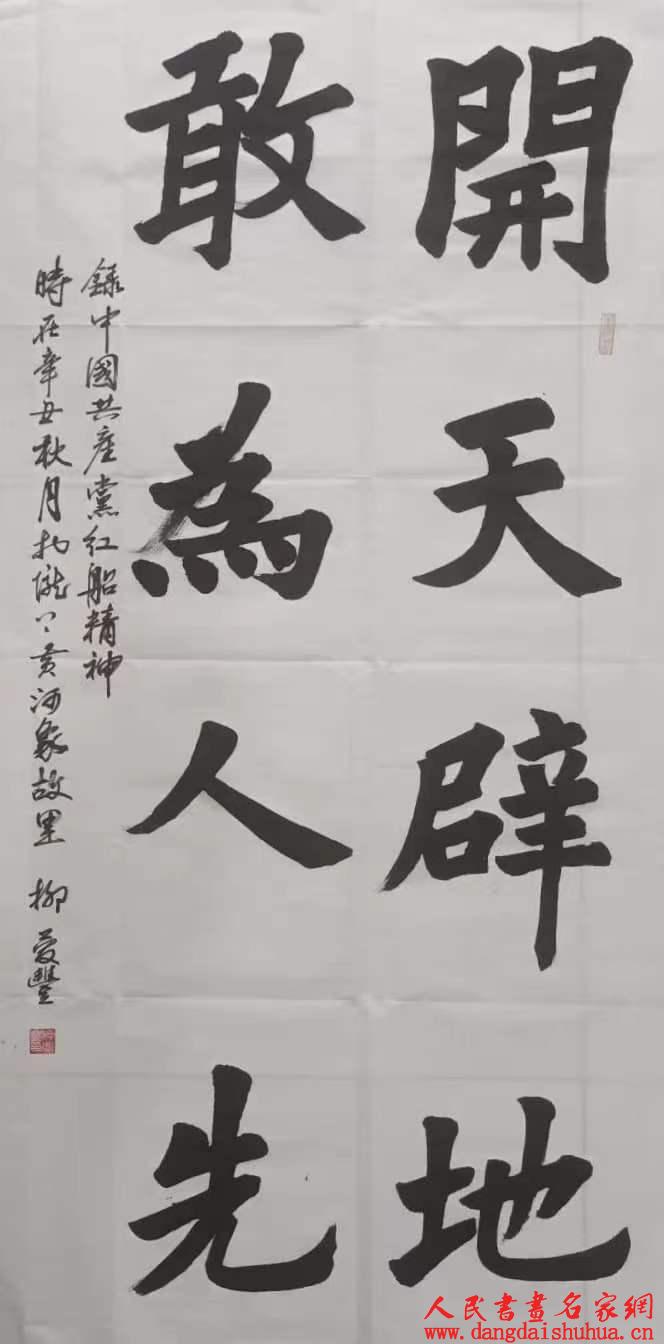 開天辟地
敢為人先
錄中國共產黨紅船精神
時在辛丑秋月於隴上黃河象故里 柳愛豐
人民書畫名家網
www.dangdaishuhua.cn